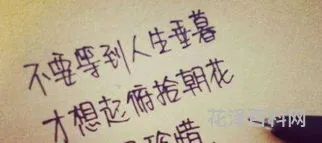 不要等到人生垂暮
才想起俯拾朝花
花泽百科网